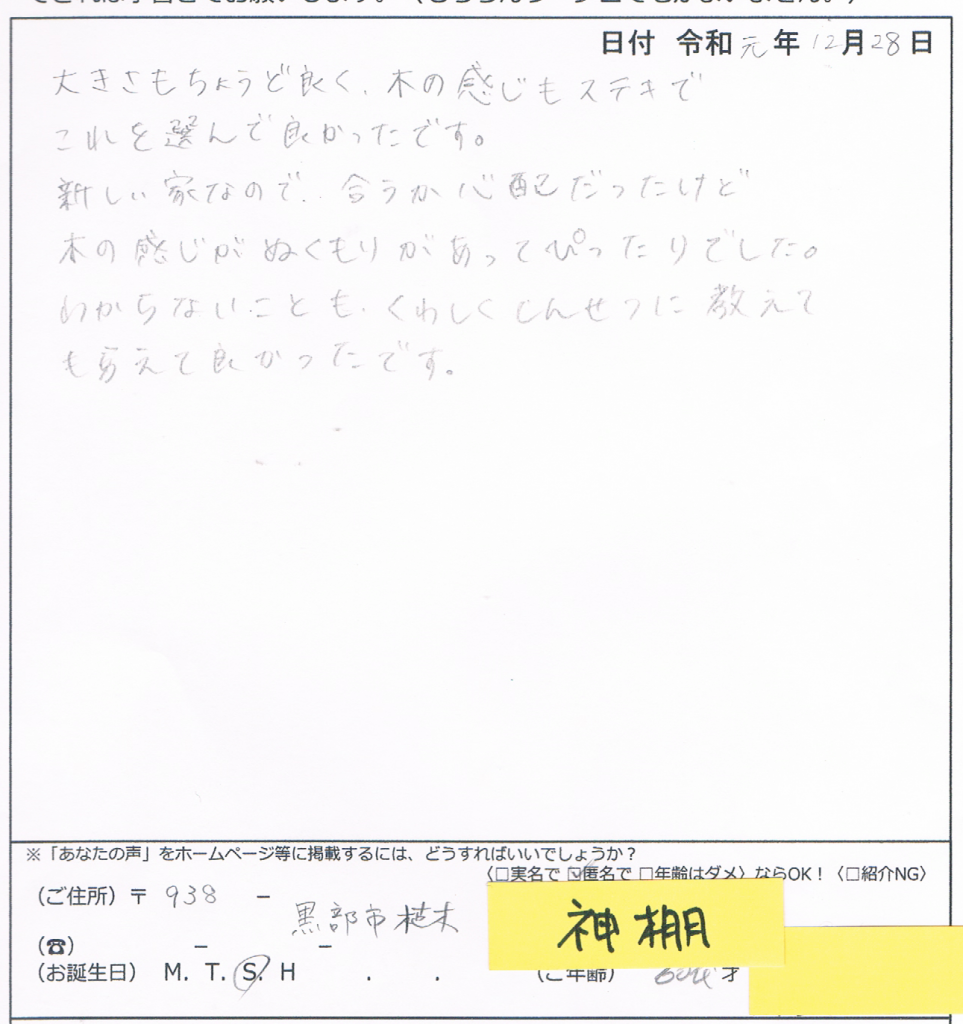 日付 令和元年12月28日
大きさもちょうど良く、木の感じもステキで
これを選んで良かったです。
新しい家なので、合うか心配だったけど
木の感じがぬくもりがあってぴったりでした。
わからないことも、くわしくしんせつに教えて
もらえて良かったです。
※「あなたの声」をホームページ等に掲載するには、どうすればいいでしょうか？
〈□実名で ☑匿名で □年齢はダメ〉ならOK！〈□紹介NG〉
（ご住所）〒 938 －
黒部市植木
神棚
（☎） － －
（お誕生日） M. T. S. H . . （ご年齢） 才